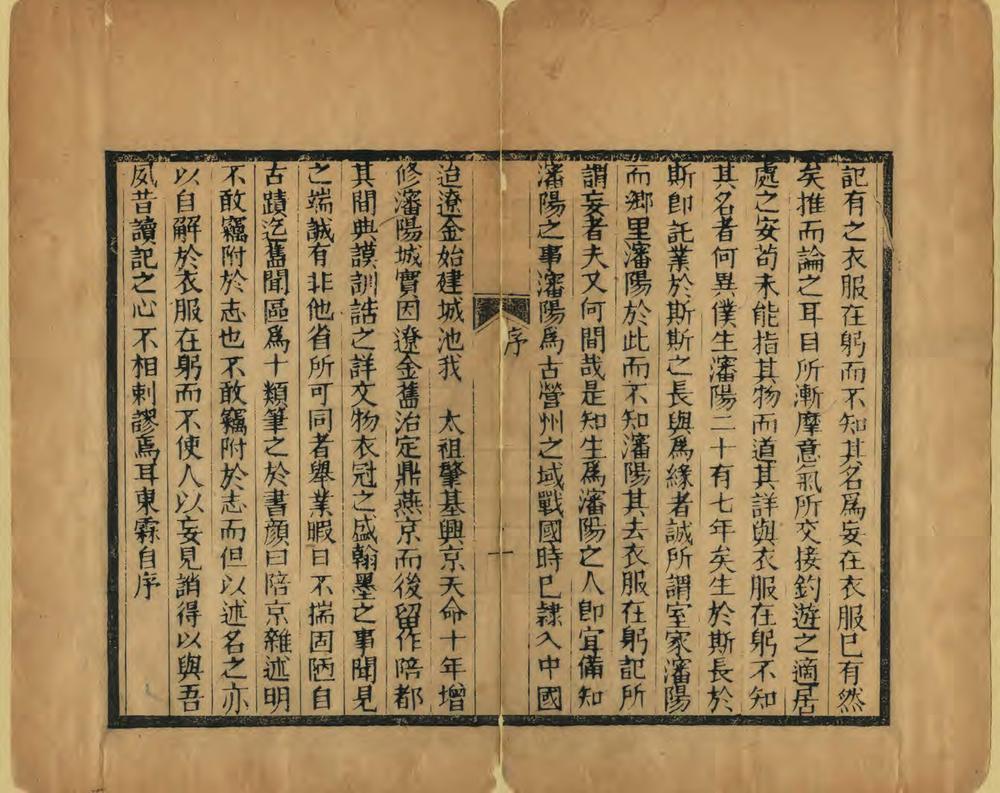 記有之衣服在躬而不知其名爲妄在衣服已有然
矣推而論之耳目所漸摩意氣所交接釣遊之適居
處之安苟未能指其物而道其詳與衣服在躬不知
其名者何異僕生瀋陽二十有七年矣生於斯長於
斯卽託業於斯斯之長與爲緣者誠所謂室家瀋陽
而鄉里瀋陽於此而不知瀋陽其去衣服在躬記所
謂妄者夫又何間哉是知生爲瀋陽之人卽宜備知
瀋陽之事瀋陽爲古營州之域戰國時已隷入中國
序
一
迨遼金始建城池我　太祖肇基興京天命十年增
修瀋陽城實因遼金舊治定鼎燕京而後留作陪都
其間典謨訓誥之詳文物衣冠之盛翰墨之事聞見
之端誠有非他省所可同者舉業暇日不揣固陋自
古蹟迄舊聞區爲十類筆之於書顔曰陪京雜述明
不敢竊附於志也不敢竊附於志而但以述名之亦
以自解於衣服在躬而不使人以妄見誚得以與吾
夙昔讀記之心不相剌謬焉耳東霖自序